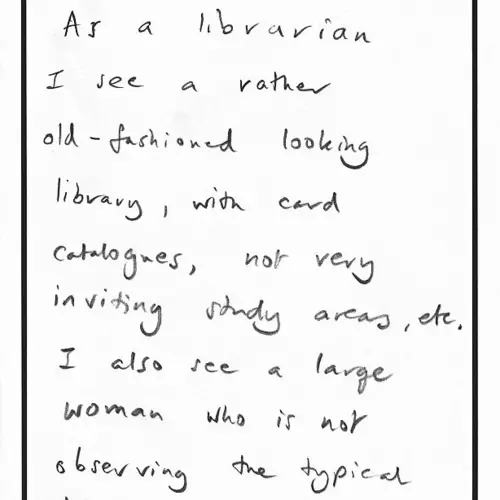 As a librarian
I see a rather
old-fashioned looking
library, with card
catalogues, not very
inviting study areas, etc.
I also see a large
woman who is not
observing the typical